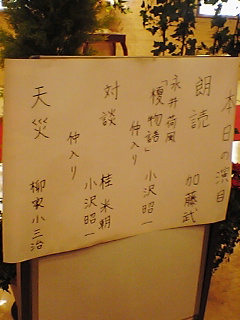 本日の演目
朗読 加藤武
永井荷風
「榎物語」 小沢昭一
仲入り
対談 桂米朝
小沢昭一
仲入り
天災 柳家小三治